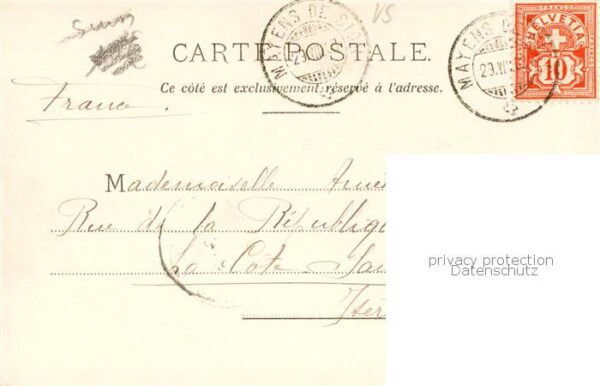 VS
CARTE POSTALE.
Ce côté est exclusivement réservé à l'adresse.
France
MAYENS DE
29
MAYENS DE
29
HELVETIA
FRANCO
10
Mademoiselle
Rue de la République
La Côte
Isèr
privacy protection
Datenschutz